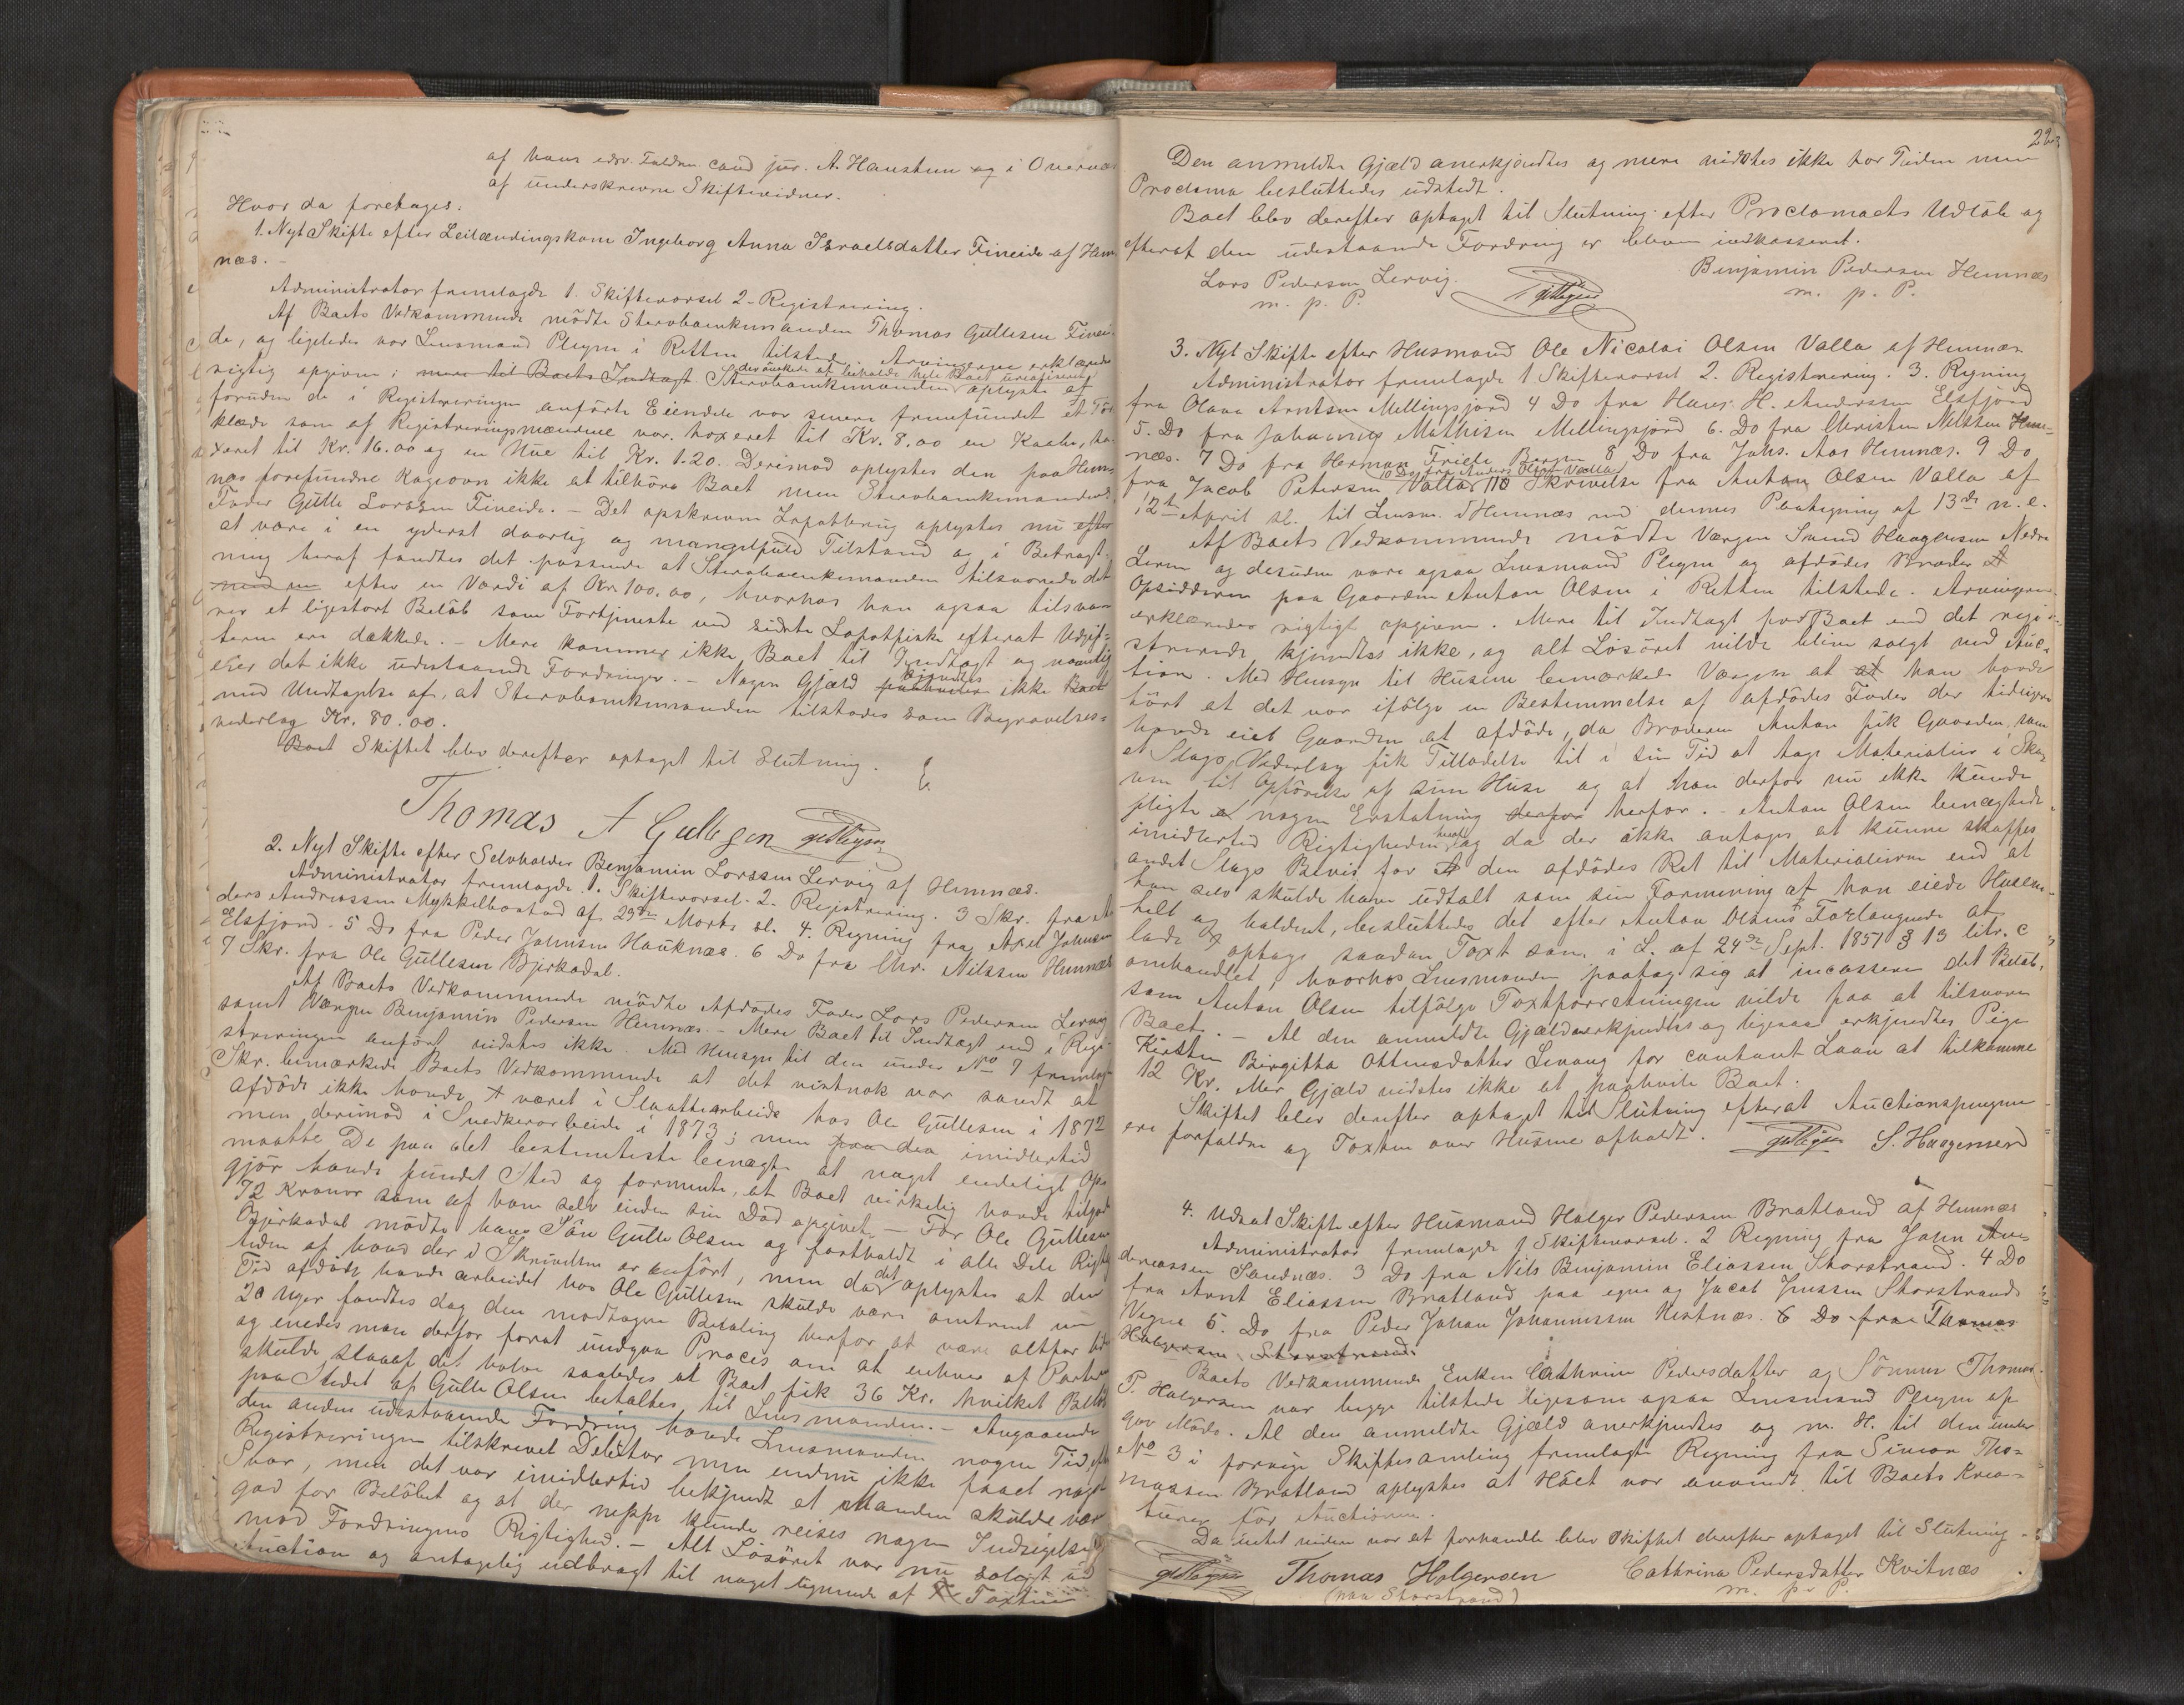 af hans edsv. Fuldm. cand jur. A. Haustum og i Overvær
af underskrevne Skiftevidner.
Hvor da foretages:
1. Nyt Skifte efter Leilændingskone Ingeborg Anna Israelsdatter Fineide af Hem-
næs. -
Administrator fremlagde 1. Skiftevorsel 2- Registrering.
Af Boets Vedkommende mødte Stervboenkemanden Thomas Gullesen Finei-
de, og ligeledes var Lensmand Pleym i Retten tilstede. Arvingerne erklærede
rigtig opgivne; mere til Boets Indtægt Stervboenkemanden der ønskede at beholde hele Boet uregliseret oplyste at
foruden de i Registreringen anførte Eiendele var senere fremfundet et Tør
klæde som af Registreringsmændene var taxeret til Kr. 8,00 en Kaabe, ta-
xeret til Kr. 16.00 og en Hue til Kr. 1.20. Derimod oplystes den paa Hem-
næs forefundne Kageovn ikke at tilhøre Boet men Stervboenkemandens
Fader Gulle Larssen Fineide. - Det opskrevne Lapotbrug oplystes nu efter
at være i en yderst daarlig og mangelfuld Tilstand og i Betragt-
ning heraf fandtes det passende at Stervboenkemanden tilsvarede det
med en efter en Værdi af Kr. 100.00, hvorhos han ogsaa tilsva-
rer et ligestort Beløb som Fortjeneste ved sidste Lapotfiske efterat Udgif-
terne ere dækkede. - Mere kommer ikke Boet til Indtægt og navnlig
eier det ikke udestaaende Fordringer. - Nogen Gjæld paahviler kjendtes ikke Boet
med Undtagelse af, at Stervboenkemanden tilstodes som Begravelses-
vederlag Kr. 80.00.
Boet Skiftet blev derefter optaget til Slutning.
Thomas A Gullesen
2. Nyt Skifte efter Selvholder Benjamin Larssen Lervig af Hemnæs.
Administrator fremlagde. 1. Skiftevorsel. 2. Registrering. 3 Skr. fra An-
ders Andreassen Mykkelbostad af 23de Marts sl. 4. Regning fra Axel Johnsen
Elsfjord. 5 Do fra Peder Johnsen Hauknæs. 6 Do fra Chr. Nilssen Hemnæs
7 Skr. fra Ole Gullesen Bjerkadal.
Af Boets Vedkommende mødte Afdødes Fader Lars Pedersen Lervig
samt Værgen Benjamin Pedersen Hemnæs. - Mere Boet til Indtægt end i Regi-
streringen anført vidstes ikke. Med Hensyn til den under No 7 fremlagte
Skr. bemærkede Boets Vedkommende at det vistnok var sandt at
afdøde ikke havde været i Slaattearbeide hos Ole Gullesen i 1872
men derimod i Snedkerarbeide i 1873; men paa den imidlertid
maatte De paa det bestemteste benægte at noget endeligt Op-
gjør havde fundet Sted og formente, at Boet virkelig havde tilgode
72 Kroner som af ham selv inden sin Død opgivet. - For Ole Gullesen
Bjerkadal mødte hans Søn Gulle Olsen og fastholdt i alle Dele Rigtig-
heden af hvad der i Skrivelsen er anført, men da det oplystes at den
Tid afdøde havde arbeidet hos Ole Gullesen skulde være omtrent
20 Uger fandtes dog den modtagne Betaling herfor at være altfor
og enedes man derfor forat undgaa Proces om at enhver af Parterne
skulde slaa af det halve saaledes at Boet fik 36 Kr. hvilket Beløb
paa Stedet af Gulle Olsen betaltes til Lensmanden. - Angaaende
den anden udestaaende Fordring havde Lensmanden nogen Tid efter
Registreringen tilskrevet Debitor men endnu ikke faaet noget
Svar, men det var imidlertid bekjendt at Manden skulde være
god for Beløbet og at der neppe kunde reises nogen Indsigelse
mod Fordringens Rigtighed. - Alt Løsøret var nu solgt ved
Auction og antagelig udbragt til noget lignende af Taxten
22
Den anmeldte Gjæld anerkjendtes og mere vidstes ikke for Tiden men
Proclama besluttedes udstedt.
Boet blev derefter optaget til Slutning efter Proclamaets Udløb og
efterat den udestaaende Fordring er bleven indkasseret.
Lars Pedersen Lervig. Benjamin Pedersen Hemnæs
m. p. P. m. p. P.
3. Nyt Skifte efter Husmand Ole Nicolai Olsen Valla af Hemnæs
Administrator fremlagde 1 Skiftevorsel 2. Registrering. 3. Regning
fra Olava Arntsen Mellingsjord 4 Do fra Hans H. Andersen Elsfjord
5. Do fra Johannes Mathisen Mellingsjord 6. Do fra Christen Nilssen Hem-
næs. 7 Do fra Herman Friele Bergen 8 Do fra Johs. Aas Hemnæs. 9 Do
fra Jacob Petersen Valla 10 Do fra Anders Olsen Valla 11 Skrivelse fra Anton Olsen Valla af
12te April sl. til Lensm. i Hemnæs med dennes Paategning af 13de n. e.
Af Boets Vedkommende mødte Værgen Svend Haagensen Nedre
Leren og desuden vare ogsaa Lensmand Pleym og afdødes Broder
Opsidderen paa Gaarden Anton Olsen i Retten tilstede. Arvingerne
erklæredes rigtigt opgivne. Mere til Indtægt for Boet end det regi-
strerede kjendtes ikke, og alt Løsøret vilde blive solgt ved Auc-
tion. Med Hensyn til Husene bemærkede Værgen at at han havde
hørt at det var ifølge en Bestemmelse af afdødes Fader der tidligere
havde eiet Gaarden at afdøde, da Broderen Anton fik Gaarden, som
et Slags Vederlag fik Tilladelse til i sin Tid at tage Materialier i Sko-
ven til Opførelse af sine Huse og at han derfor nu ikke kunde
pligte nogen Erstatning derfor herfor. - Anton Olsen benægtede
imidlertid Rigtigheden heraf, og da der ikke antages at kunne skaffes
andet Slags Bevis for den afdødes Ret til Materialierne end at
han selv skulde have udtalt som sin Formening at han eiede Husene
helt og holdent, besluttedes det efter Anton Olsens Forlangende at
lade optage saadan Taxt som i L. af 24de Sept. 1851 § 13 litr. c
omhandlet, hvorhos Lensmanden paatog sig at incassere det Beløb,
som Anton Olsen tilfølge Taxtforretningen vilde faa at tilsvare
Boet. - Al den anmeldte Gjæld anerkjendtes og ligesaa erkjendtes Pige
Kirsten Birgitha Ottinesdatter Levang for contant Laan at tilkomme
12 Kr. Mer Gjæld vidstes ikke at paahvile Boet.
Skiftet blev derefter optaget til Slutning efterat Auctionspengene
ere forfaldne og Taxten over Husene afholdt. S. Haagensen
4. Udsat Skifte efter Husmand Holger Pedersen Bratland af Hemnæs
Administrator fremlagde 1 Skiftevorsel. 2 Regning fra John An-
dreassen Sandnæs. 3 Do fra Nils Benjamin Eliassen Storstrand. 4 Do
fra Arnt Eliassen Bratland paa egne og Jacob Jenssen Storstrands
Vegne 5. Do fra Peder Johan Johannessen Hestnæs. 6 Do fra Thomas
Holgersen Storstrand.
Boets Vedkommende Enken Cathrine Pedersdatter og Sønnen Thomas
P. Holgersen var begge tilstede ligesom ogsaa Lensmand Pleym af-
gav Møde. Al den anmeldte Gjæld anerkjendtes og m. H. til den under
No 3 i forrige Skiftesamling fremlagte Regning fra Simon Tho-
massen Bratland oplystes at Høet var anvendt til Boets Krea-
turer før Auctionen.
Da intet videre var at forhandle blev Skiftet derefter optaget til Slutning -
Thomas Holgersen Cathrina Pedersdatter Kvitnæs
(paa Storstrand) m. p. P.